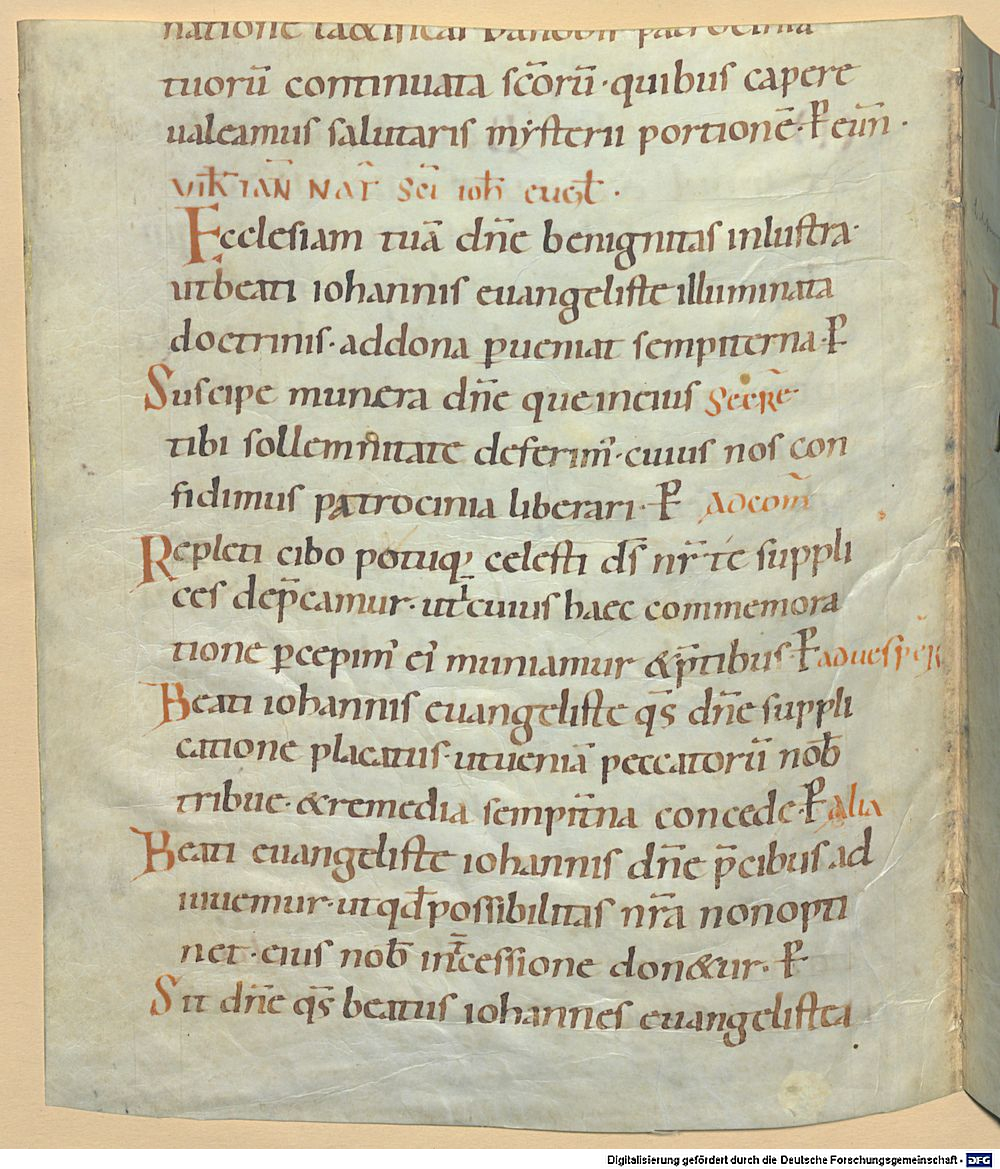 natione laetificat patrocinia
tuorū continuata sc̄orū · quibus capere
ualeamus salutaris mẏsterii portionē · P̄ eun̄dē ·
VIII KL IAN NAT̄ SC̄I ioh̄ eugl̄ ·
Ecclesiam tuā dn̄e benignitas inlustra ·
ut beati iohannis euangeliste illuminata
doctrinis · ad dona ꝑueniat sempiterna · P̄
Suscipe munera dn̄e que in eius SECRE ·
tibi sollemnitate deferim̄ · cuius nos con
fidimus patrocinia liberari · P̄ AD COM̄
Repleti cibo potuq; celesti ds̄ nr̄ te suppli
ces dep̄camur · ut cuius haec commemora
tione ꝑcepim̄ ei muniamur & p̄cibus · P̄ AD UESPER
Beati iohannis euangeliste qs̄ dn̄e suppli
catione placatus · ut ueniā peccatorū nob̄
tribue · & remedia sempit̄na concede · P̄ alia
Beati euangeliste iohannis dn̄e p̄cibus ad
iuuemur · ut qd̄ possibilitas nr̄a non opti
net · eius nob̄ int̄cessione don&ur · P̄
Sit dn̄e qs̄ beatus iohannes euangelista
Digitalisierung gefördert durch die Deutsche Forschungsgemeinschaft - DFG